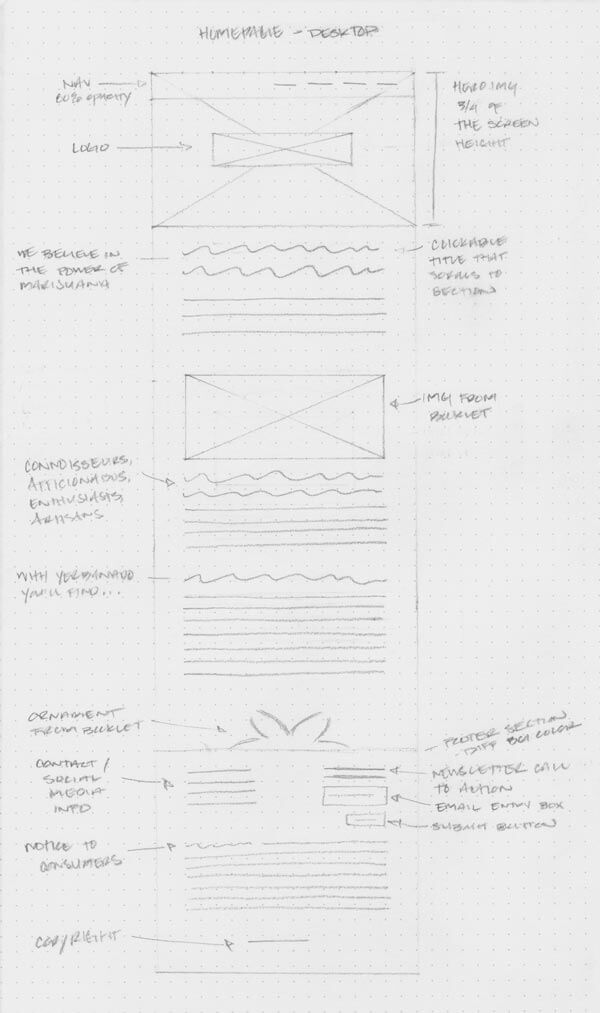 HOMEPAGE - DESKTOP
NAV
80% OPACITY
HERO IMG
3/4 OF
THE SCREEN
HEIGHT
LOGO
WE BELIEVE IN
THE POWER OF
MARIJUANA
CLICKABLE
TITLE THAT
SCROLLS TO
SECTION
IMG FROM
BOOKLET
CONNOISSEURS,
AFICIONADOS,
ENTHUSIASTS,
ARTISANS
WITH YERBANADO
YOU'LL FIND...
ORNAMENT
FROM BOOKLET
FOOTER SECTION
DIFF BG COLOR
CONTACT /
SOCIAL
MEDIA
INFO
NEWSLETTER CALL
TO ACTION
EMAIL ENTRY BOX
SUBMIT BUTTON
NOTICE TO
CONSUMERS
COPYRIGHT